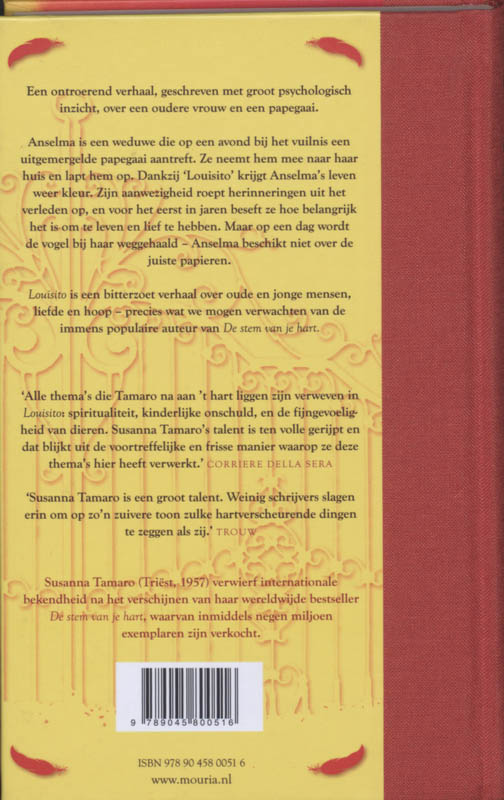 Een ontroerend verhaal, geschreven met groot psychologisch
inzicht, over een oudere vrouw en een papegaai.
Anselma is een weduwe die op een avond bij het vuilnis een
uitgemergelde papegaai aantreft. Ze neemt hem mee naar haar
huis en lapt hem op. Dankzij ‘Louisito’ krijgt Anselma’s leven
weer kleur. Zijn aanwezigheid roept herinneringen uit het
verleden op, en voor het eerst in jaren beseft ze hoe belangrijk
het is om te leven en lief te hebben. Maar op een dag wordt
de vogel bij haar weggehaald – Anselma beschikt niet over de
juiste papieren.
Louisito is een bitterzoet verhaal over oude en jonge mensen,
liefde en hoop – precies wat we mogen verwachten van de
immens populaire auteur van De stem van je hart.
‘Alle thema’s die Tamaro na aan ’t hart liggen zijn verweven in
Louisito: spiritualiteit, kinderlijke onschuld, en de fijngevoelig-
heid van dieren. Susanna Tamaro’s talent is ten volle gerijpt en
dat blijkt uit de voortreffelijke en frisse manier waarop ze deze
thema’s hier heeft verwerkt.’ CORRIERE DELLA SERA
‘Susanna Tamaro is een groot talent. Weinig schrijvers slagen
erin om op zo’n zuivere toon zulke hartverscheurende dingen
te zeggen als zij.’ TROUW
Susanna Tamaro (Triëst, 1957) verwierf internationale
bekendheid na het verschijnen van haar wereldwijde bestseller
De stem van je hart, waarvan inmiddels negen miljoen
exemplaren zijn verkocht.
9 789045 800516
ISBN 978 90 458 0051 6
www.mouria.nl